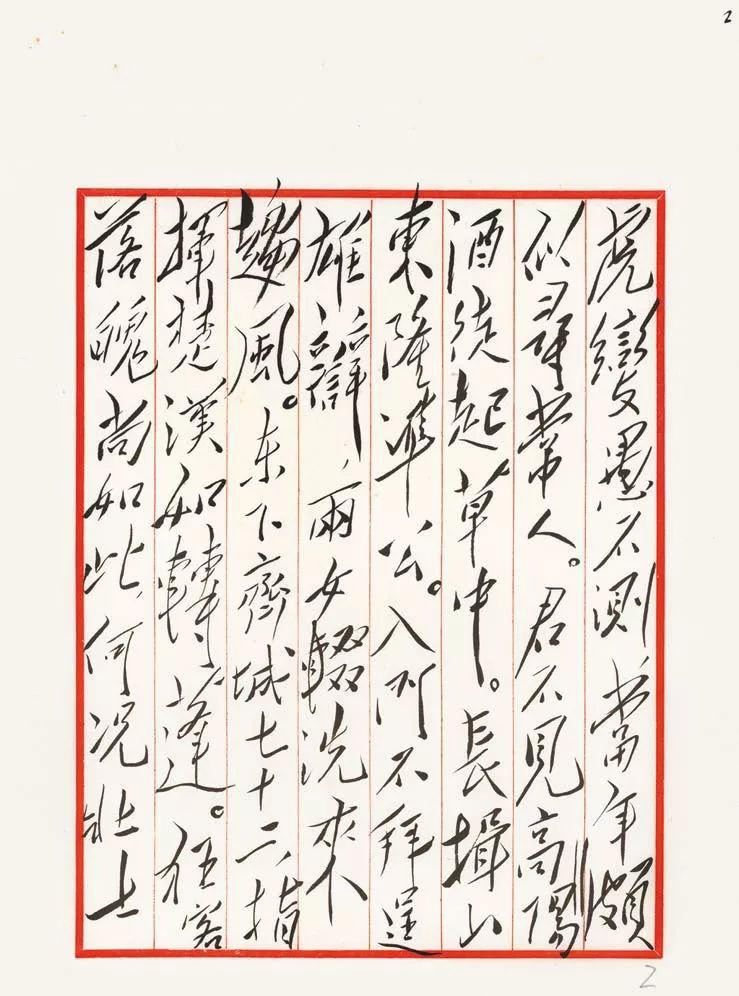 2
虎變愚不測當年頗
似尋常人。君不見高陽
酒徒起草中。長揖山
東隆準公。入門不拜逞
雄辯，兩女輟洗來
趨風。东下齊城七十二，指
揮楚漢如轉蓬。狂客
落魄尚如此，何況壯士
2